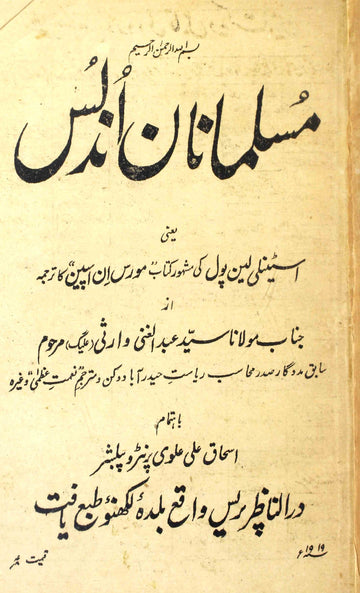 بسم اللہ الرحمٰن الرحیم
مُسلمانان اُندلُس
یعنی
اسٹینلی لین پول کی مشہور کتاب "مورس اِن اسپین" کا ترجمہ
از
جناب مولانا سیّد عبد الغنی وارثی (علیگ) مرحوم
سابق مددگار صدر محاسب ریاست حیدرآباد دکن و مترجم "نعمت عظمیٰ" وغیرہ
باہتمام
اسحاق علی علوی پرنٹر و پبلشر
در الناظر پریس واقع بلدۂ لکھنؤ طبع یافت
۱۹۱۹ء
قیمت